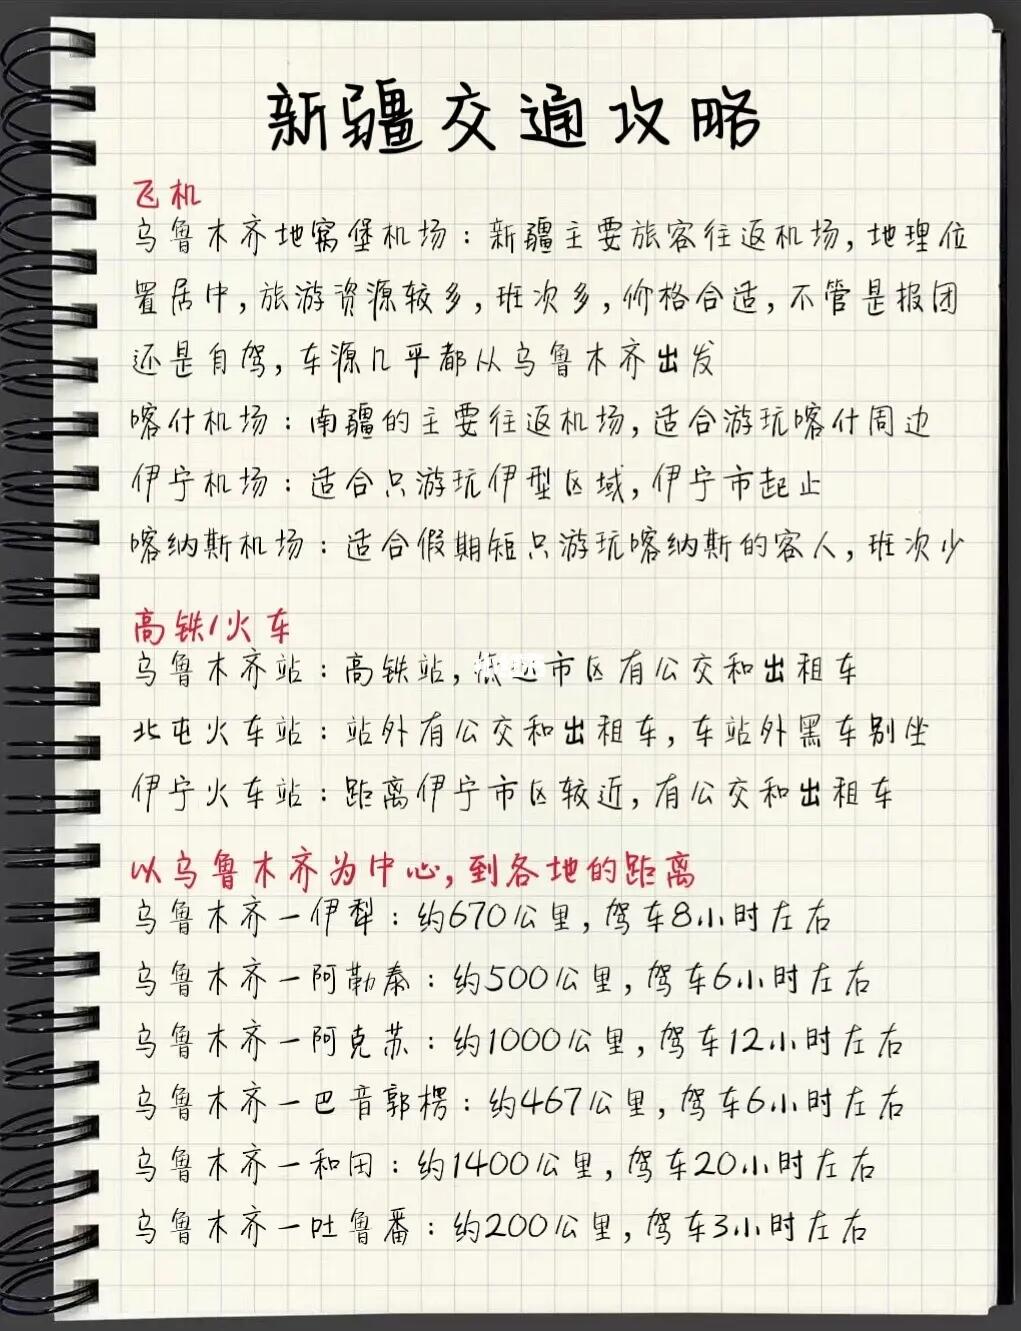 新疆交通攻略
飞机
乌鲁木齐地窝堡机场：新疆主要旅客往返机场，地理位
置居中，旅游资源较多，班次多，价格合适，不管是报团
还是自驾，车源几乎都从乌鲁木齐出发
喀什机场：南疆的主要往返机场，适合游玩喀什周边
伊宁机场：适合只游玩伊型区域，伊宁市起止
喀纳斯机场：适合假期短只游玩喀纳斯的客人，班次少
高铁/火车
乌鲁木齐站：高铁站，市区有公交和出租车
北屯火车站：站外有公交和出租车，车站外黑车别坐
伊宁火车站：距离伊宁市区较近，有公交和出租车
以乌鲁木齐为中心，到各地的距离
乌鲁木齐一伊犁：约670公里，驾车8小时左右
乌鲁木齐一阿勒泰：约500公里，驾车6小时左右
乌鲁木齐一阿克苏：约1000公里，驾车12小时左右
乌鲁木齐一巴音郭楞：约467公里，驾车6小时左右
乌鲁木齐一和田：约1400公里，驾车20小时左右
乌鲁木齐一吐鲁番：约200公里，驾车3小时左右